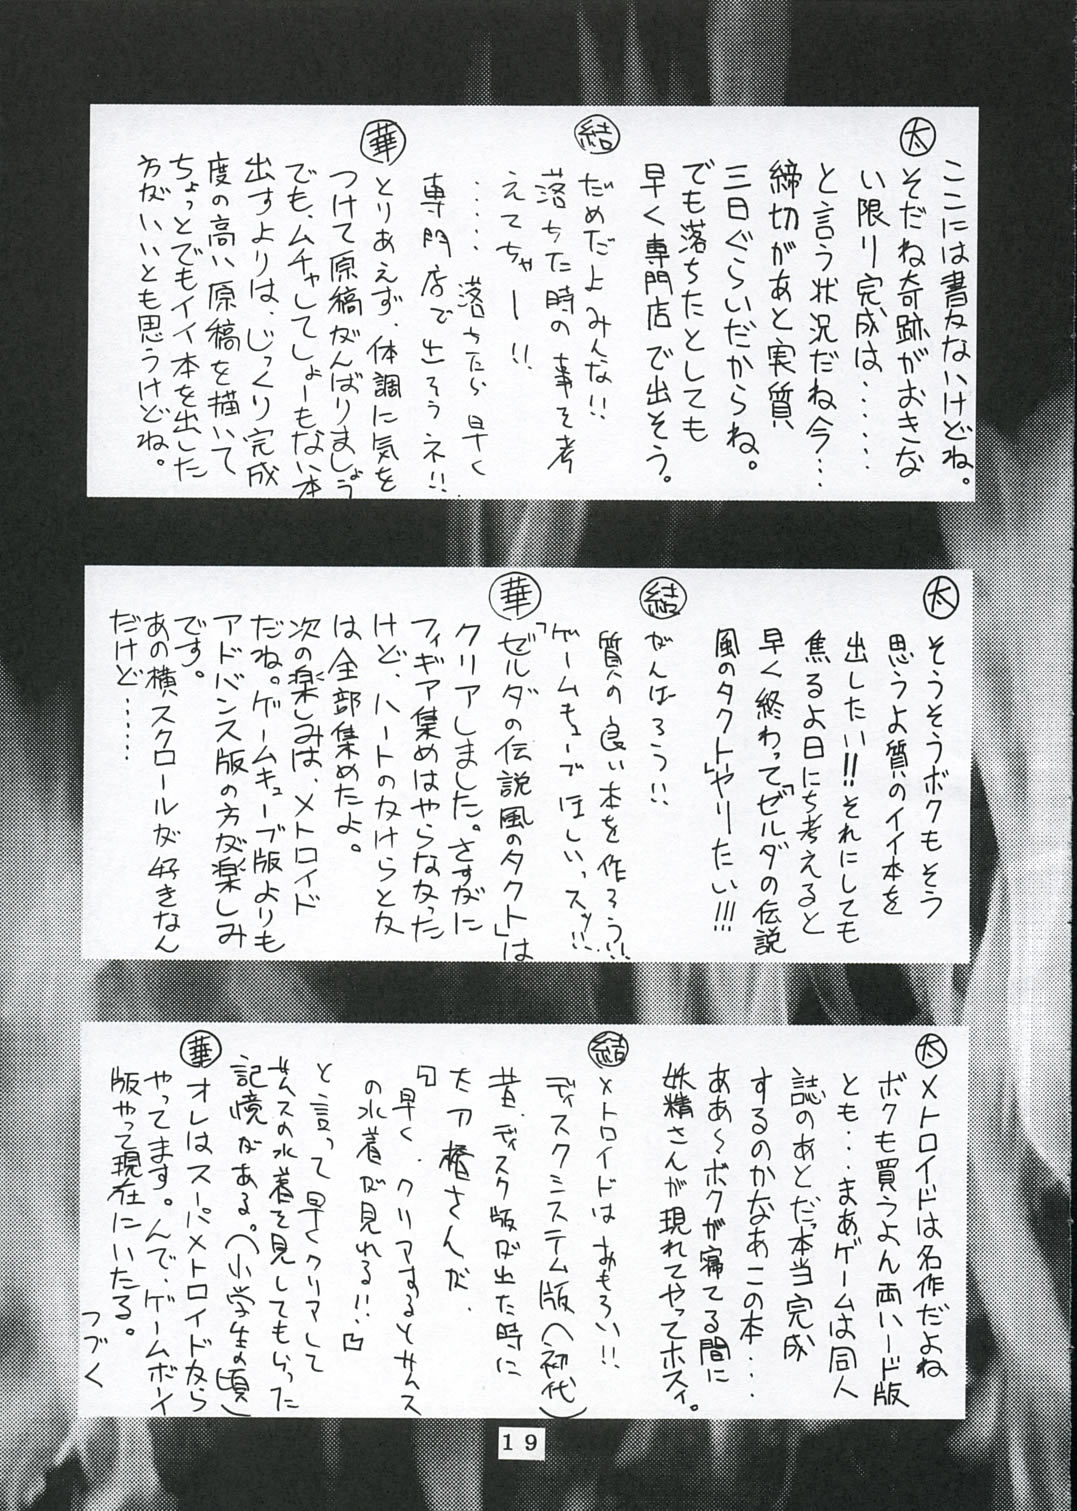 ここには書けないけどね。
太
そだね奇跡がおきな
い限り完成は……
と言う状況だね今…
締切があと実質
三日ぐらいだからね。
でも落ちたとしても
早く専門店で出そう。
結
だめだよみんな!!
落ちた時の事を考
えてちゃー!!
……落ちたら早く
専門店で出そうネ!!
華
とりあえず、体調に気を
つけて原稿がんばりましょう
でも、ムチャしてしょーもない本
出すよりは、じっくり完成
度の高い原稿を描いて
ちょっとでもイイ本を出した
方がいいとも思うけどね。
太
そうそうボクもそう
思うよ質のイイ本を
出したい!!それにしても
焦るよ日にち考えると
早く終わって「ゼルダの伝説
風のタクト」やりたい!!!
結
がんばろう!!
質の良い本を作ろう!!
「ゲームキューブ」ほしいっスッ!!
華
「ゼルダの伝説風のタクト」は
クリアしました。さすがに
フィギア集めはやらなかった
けど、ハートのかけらとか
は全部集めたよ。
次の楽しみは、メトロイド
だね。ゲームキューブ版よりも
アドバンス版の方が楽しみ
です。
あの横スクロールが好きなん
だけど……
太
メトロイドは名作だよね
ボクも買うよん両ハード版
とも…まあゲームは同人
誌のあとだっ本当完成
するのかなあこの本…
ああ〜ボクが寝てる間に
妖精さんが現れてやってホスィ。
結
メトロイドはおもろい!!
ディスクシステム版(初代)
昔、ディスク版が出た時に
太刀橋さんが、
『早く、クリアするとサムス
の水着が見れる!!』
と言って早くクリアして
サムスの水着を見してもらった
記憶がある。(小学生の頃)
華
オレはスーパーメトロイドから
やってます。んで、ゲームボーイ
版やって現在にいたる。
つづく
19